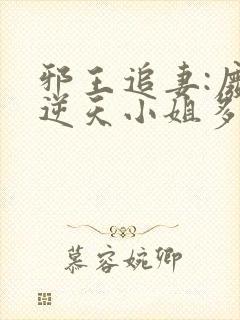 邪王追妻:
逆天小姐多
慕容婉卿